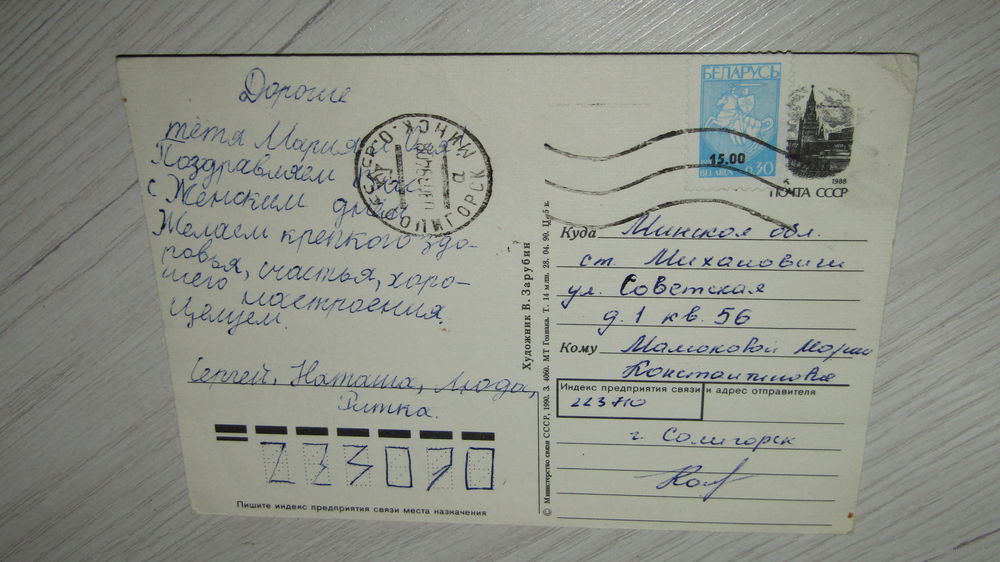 Дорогие
тётя Мария и
Поздравляем Вас
с Женским днём
Желаем крепкого здо-
ровья, счастья, хоро-
шего настроения.
Целуем.
Сергей, Наташа, Люда,
Ритка.
223010
Пишите индекс предприятия связи места назначения
СОЛИГОРСК МИНСК. О
а
Художник В. Зарубин
© Министерство связи СССР, 1990. З. 4060. МТ Гознака. Т. 14 млн. 28. 04. 90. Ц. 5 к.
БЕЛАРУСЬ
15.00
BELARUS 0,30
1988
ПОЧТА СССР
Куда Минская обл.
ст. Михановичи
ул. Советская
д. 1 кв. 56
Кому Мамоновой Марии
Константиновне
Индекс предприятия связи и адрес отправителя
223710
г. Солигорск